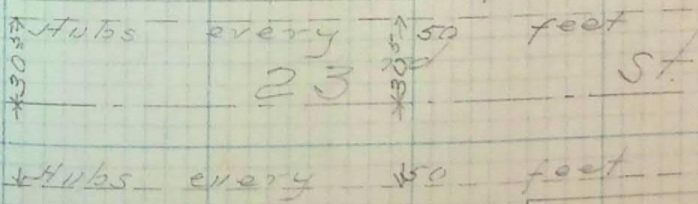 Hubs every 50 feet
23 St.
30.5
30.5
Hubs every 50 feet